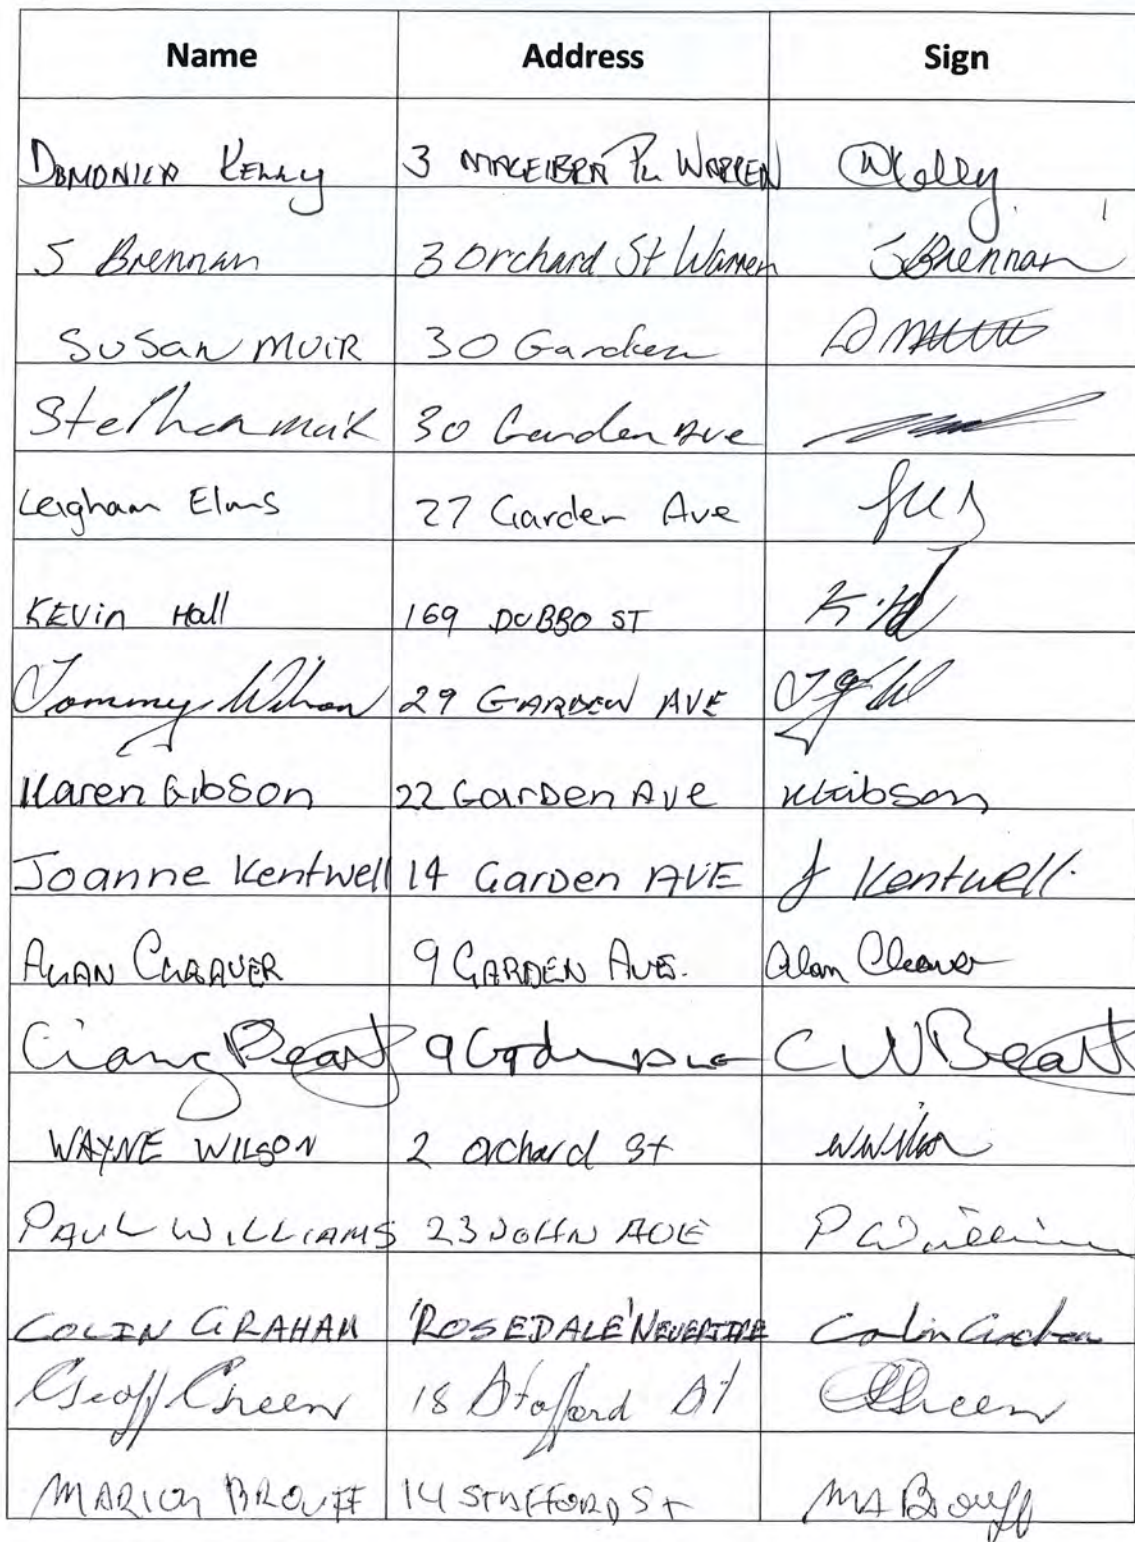 Name Address Sign
DOMONICA KELLY 3 MACEIBRA PL WARREN DKelly
S Brennan 3 Orchard St Warren SBrennan
SUSAN MUIR 30 Garden
Stephen muir 30 Garden Ave
Leigham Elms 27 Garden Ave
KEVin Hall 169 DUBBO ST K. Hall
Tommy Wilson 29 GARDEN AVE
Karen GibSon 22 GarDen Ave KGibson
Joanne Kentwell 14 GarDen AVE J Kentwell.
ALAN CLEAVER 9 GARDEN AVE. Alan Cleaver
Craig Beatt 9 Garden Ave CWBeatt
WAYNE WILSON 2 orchard St WWilson
PAUL WILLIAMS 23 JOHN AVE P Williams
COLIN GRAHAM 'ROSEDALE' NEVERTIRE Colin Graham
Geoff Green 18 Stafford St GGreen
MARION BROUFF 14 STAFFORD St MA Brouff